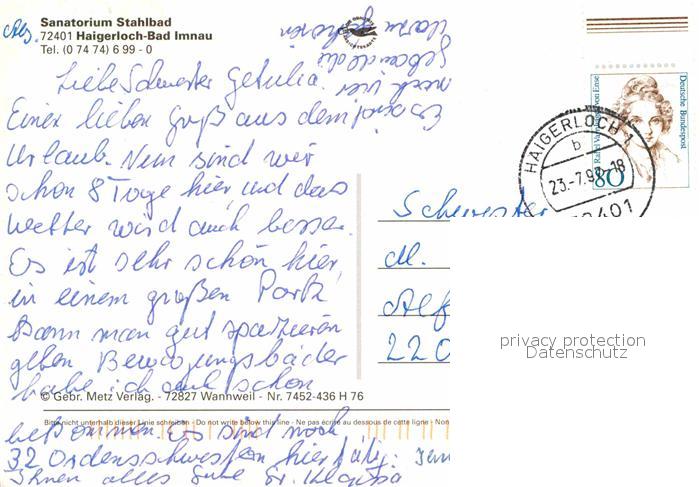 Abs.
Sanatorium Stahlbad
72401 Haigerloch-Bad Imnau
Tel. (0 74 74) 6 99 - 0
Liebe Schwester Getulia.
Einen lieben Gruß aus dem
Urlaub. Nun sind wir
schon 8 Tage hier und das
Wetter wird auch besser.
Es ist sehr schön hier,
in einem großen Park
kann man gut spazieren
gehen Bewegungsbäder
habe ich auch schon
© Gebr. Metz Verlag. - 72827 Wannweil - Nr. 7452-436 H 76
Bitte nicht unterhalb dieser Linie schreiben - Do not write below this line - Ne pas écrire au dessous de cette ligne - Non
bekommen. Es sind noch
32 Ordensschwestern hier
Ihnen alles Gute Sr.
noch vier
Gebäude die
dazu gehören
Deutsche Bundespost
Rahel Varnhagen von Ense
80
HAIGERLOCH 1
b
23.-7.9 -18
72401
Schwester
M.
Alf
220
privacy protection
Datenschutz